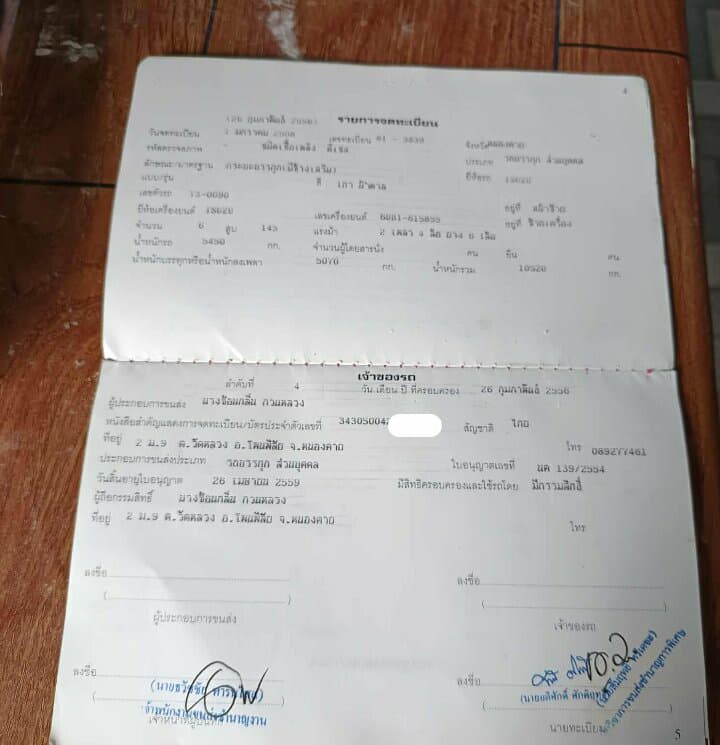 4
(26 กุมภาพันธ์ 2556) รายการจดทะเบียน
วันจดทะเบียน 7 มกราคม เลขทะเบียน 81 - 3839 จังหวัด หนองคาย
ชนิดเชื้อเพลิง ดีเซล ประเภท รถบรรทุก ส่วนบุคคล
ลักษณะ/มาตรฐาน กระบะบรรทุก(มีข้างเสริม) ยี่ห้อรถ ISUZU
แบบ/รุ่น สี เทา
เลขตัวรถ อยู่ที่
ยี่ห้อเครื่องยนต์ ISUZU เลขเครื่องยนต์ อยู่ที่
จำนวน 6 สูบ 145 แรงม้า 2 เพลา 4 ล้อ ยาง 6 เส้น
น้ำหนักรถ 5450 กก. จำนวนผู้โดยสารนั่ง คน ยืน คน
น้ำหนักบรรทุกหรือน้ำหนักลงเพลา 5070 กก. น้ำหนักรวม 10520 กก.
เจ้าของรถ
ลำดับที่ 4 วัน เดือน ปี ที่ครอบครอง 26 กุมภาพันธ์ 2556
ผู้ประกอบการขนส่ง นางซ้อนกลิ่น กวนหลวง
หนังสือสำคัญแสดงการจดทะเบียน/บัตรประจำตัวเลขที่ 343050042 สัญชาติ ไทย
ที่อยู่ 2 ม.9 ต.วัดหลวง อ.โพนพิสัย จ.หนองคาย โทร 089277461
ประกอบการขนส่งประเภท รถบรรทุก ส่วนบุคคล ใบอนุญาตเลขที่ นค 139/2554
วันสิ้นอายุใบอนุญาต 26 เมษายน 2559 มีสิทธิครอบครองและใช้รถโดย มีกรรมสิทธิ์
ผู้ถือกรรมสิทธิ์ นางซ้อนกลิ่น กวนหลวง
ที่อยู่ 2 ม.9 ต.วัดหลวง อ.โพนพิสัย จ.หนองคาย โทร
ลงชื่อ ลงชื่อ
( ) ( )
ผู้ประกอบการขนส่ง เจ้าของรถ
ลงชื่อ ลงชื่อ
(นายธวัชชัย
เจ้าพนักงานขนส่งชำนาญงาน
นายทะเบียน
5